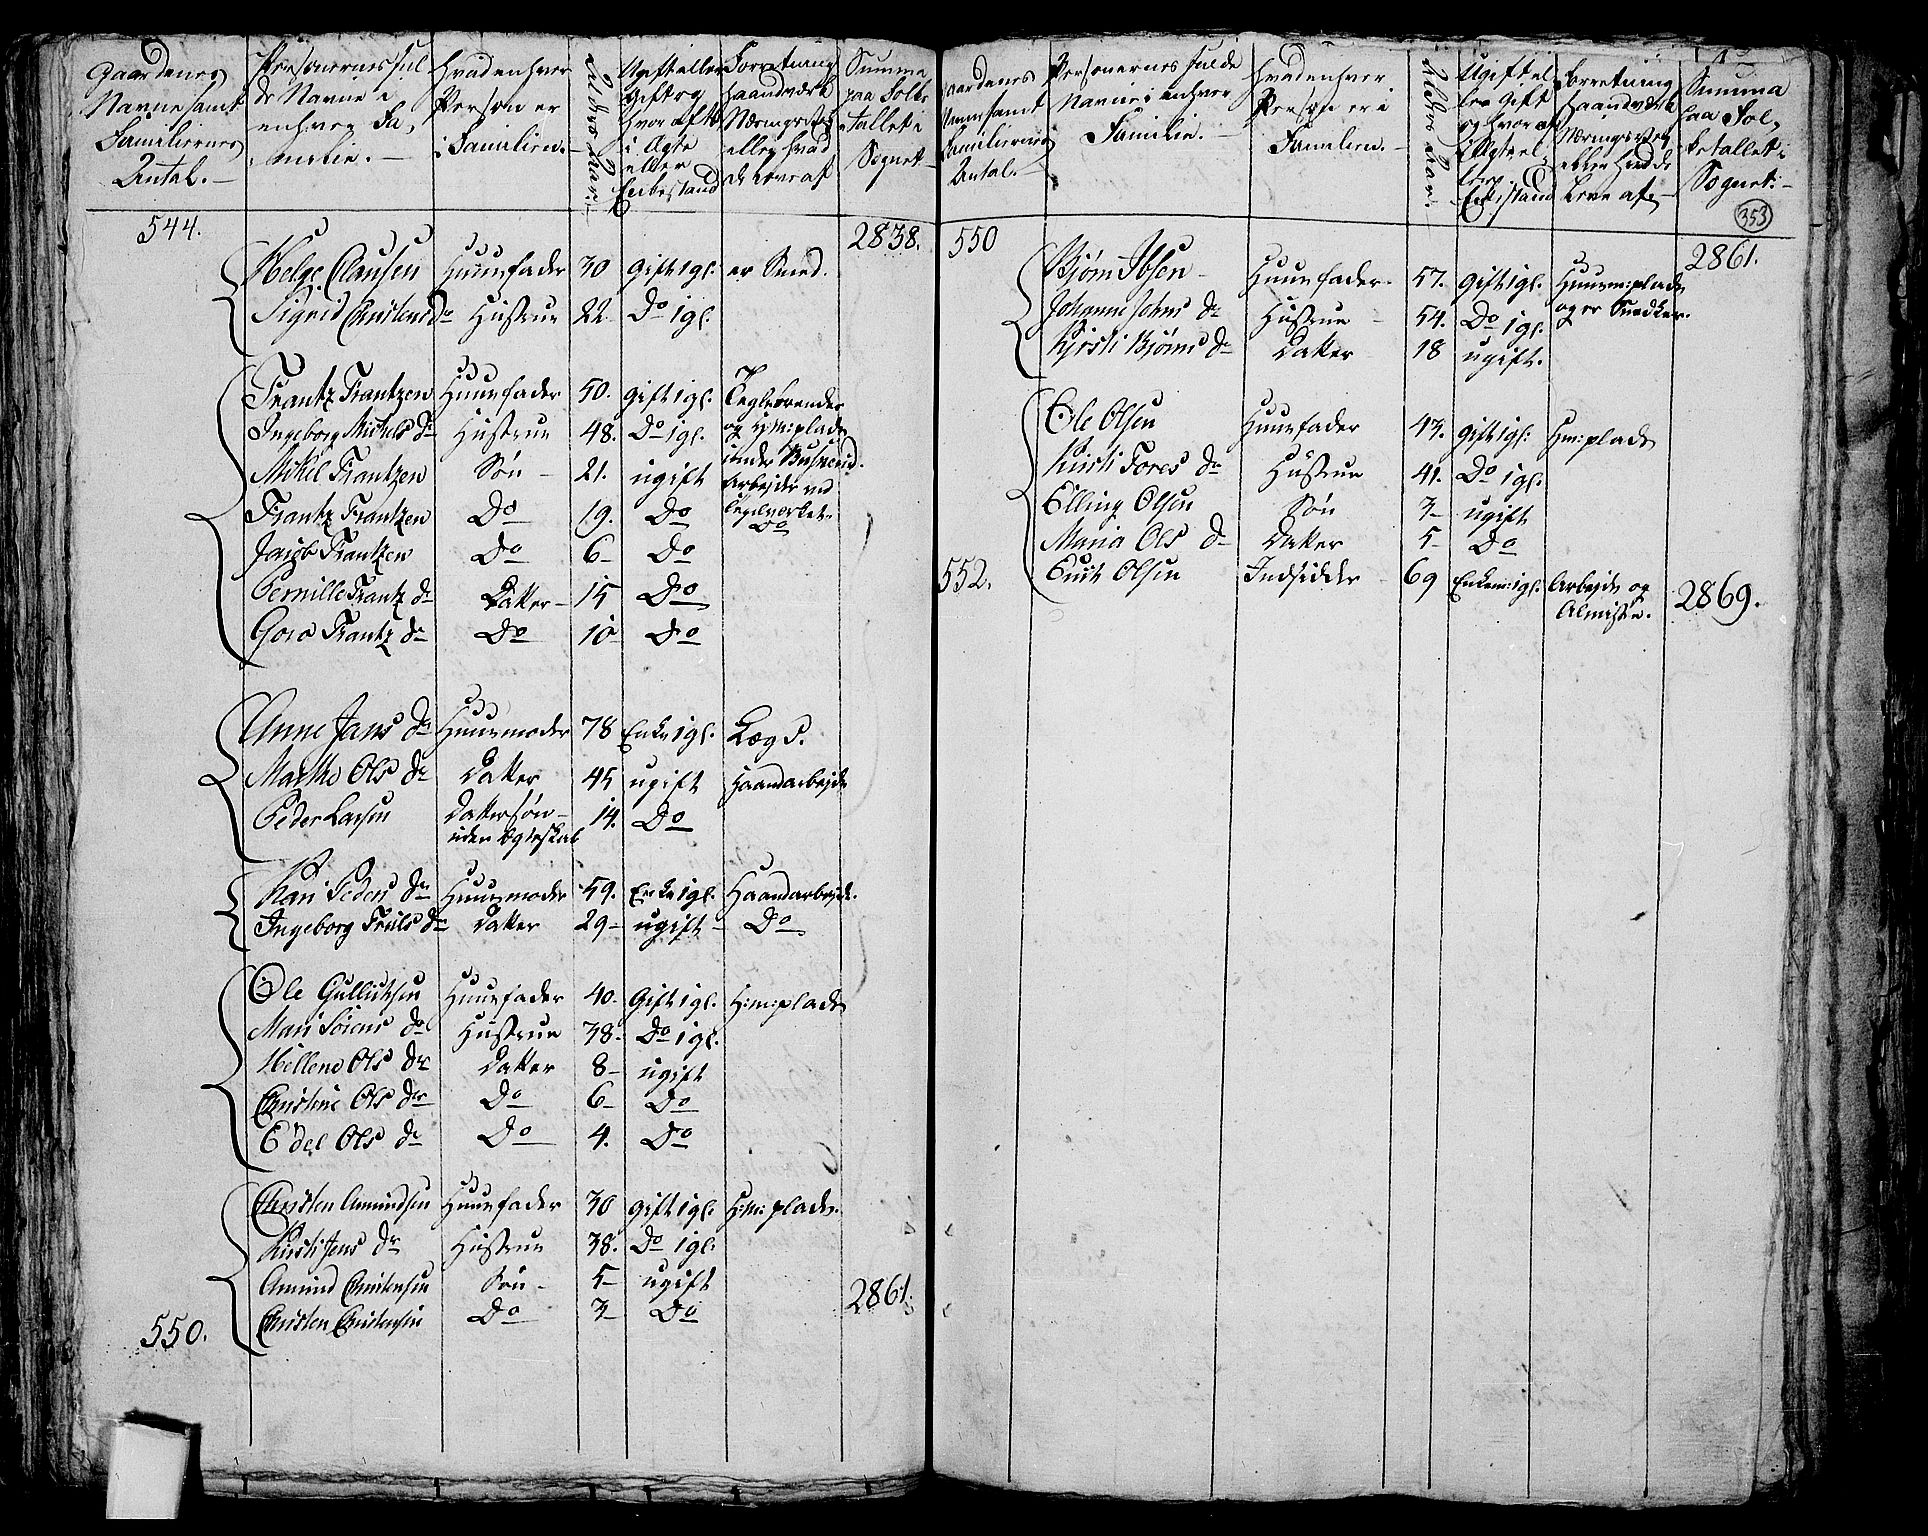 Gaardenes Navne samt Familiernes Antal.
Personernes fulde Navne i enhver Familie.
Hvad enhver Person er i Familien.
Alders Aar.
Ugift eller Gift og hvor ofte i Ægte eller Enkestand
Forretning Haandværk Næringsvej eller hvad de leve af
Summa paa Folketallet i Sognet
544. 2838.
Helge Clausen Huusfader 30 gift 1gl. er Smed.
Sigrid Christens Dr Hustrue 22 Do 1gl.
Frantz Frantzen Huusfader 50. gift 1gl. Teglbrender og H:m:plads under
Ingeborg Mikels Dr Hustrue 48. Do 1gl.
Mikkel Frantzen Søn 21. ugift Arbejder ved Teglverket.
Frantz Frantzen Do 19. Do Do
Jacob Frantzen Do 6 Do
Pernille Frantz Dr Datter 15 Do
Goro Frantz Dr Do 10 Do
Anne Jans Dr Huusmoder 78 Enke 1gl. Læg S.
Marthe Ols Dr Datter 45 ugift Haandarbejde
Peder Larsen Dattersøn uden Egteskab 14. Do
Kari Peders Dr Huusmoder 59. Enke 1gl. Haandarbejde.
Ingeborg Truls Dr Datter 29 ugift Do
Ole Gullichsen Huusfader 40 gift 1gl. H:m:plads
Mari Sørens Dr Hustrue 38 Do 1gl.
Hellene Ols Dr Datter 8 ugift
Christine Ols Dr Do 6 Do
Edel Ols Dr Do 4. Do
Christen Amundsen Huusfader 30 gift 1gl. H:m: plads.
Kirsti Jens Dr Hustrue 38. Do 1gl.
Amund Christensen Søn 5 ugift
Christen Christensen Do 3 Do
550. 2861.
Gaardenes Navne samt Familiernes Antal.
Personernes fulde Navne i enhver Familie.
Hvad enhver Person er i Familien.
Alders Aar.
Ugift eller Gift og hvor oft i Ægte eller Enkestand
Forretning Haandværk Næringsvej eller hvad de Leve af
Summa paa Folketallet i Sognet.
353
550 2861.
Bjørn Ibsen Huusfader 57. gift 1gl. Huusm:plads og er Snedker.
Johanne Johns Dr Hustrue 54. Do 1gl.
Kjersti Bjørns Dr Datter 18 ugift.
Ole Olsen Huusfader 43. gift 1gl. H:m:plads
Kirsti Tores Dr Hustrue 41. Do 1gl.
Elling Olsen Søn 7 ugift
Maria Ols Dr Datter 5 Do
552. Olsen Indsidder 69 Enkem: 1gl. Arbejde og Almisse. 2869.